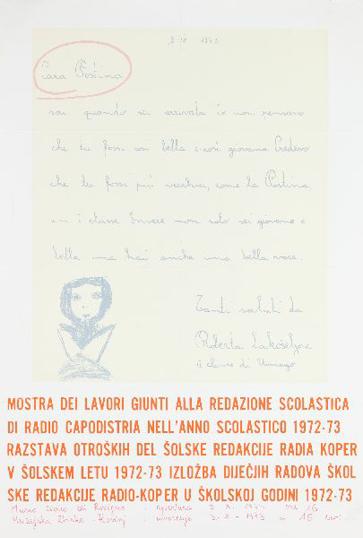 Cara
sai quando sei arrivata io non pensavo
che tu fossi così bella e così giovane Credevo
che tu fossi più vecchia, come la
in i classe Invece non solo sei giovane e
bella ma hai anche una bella voce.
Tanti saluti da
Roberta
classe di Umago
MOSTRA DEI LAVORI GIUNTI ALLA REDAZIONE SCOLASTICA
DI RADIO CAPODISTRIA NELL'ANNO SCOLASTICO 1972-73
RAZSTAVA OTROŠKIH DEL ŠOLSKE REDAKCIJE RADIA KOPER
V ŠOLSKEM LETU 1972-73 IZLOŽBA DIJEČJIH RADOVA ŠKOL
SKE REDAKCIJE RADIO-KOPER U ŠKOLSKOJ GODINI 1972-73
Museo Civico di Rovigno - apertura